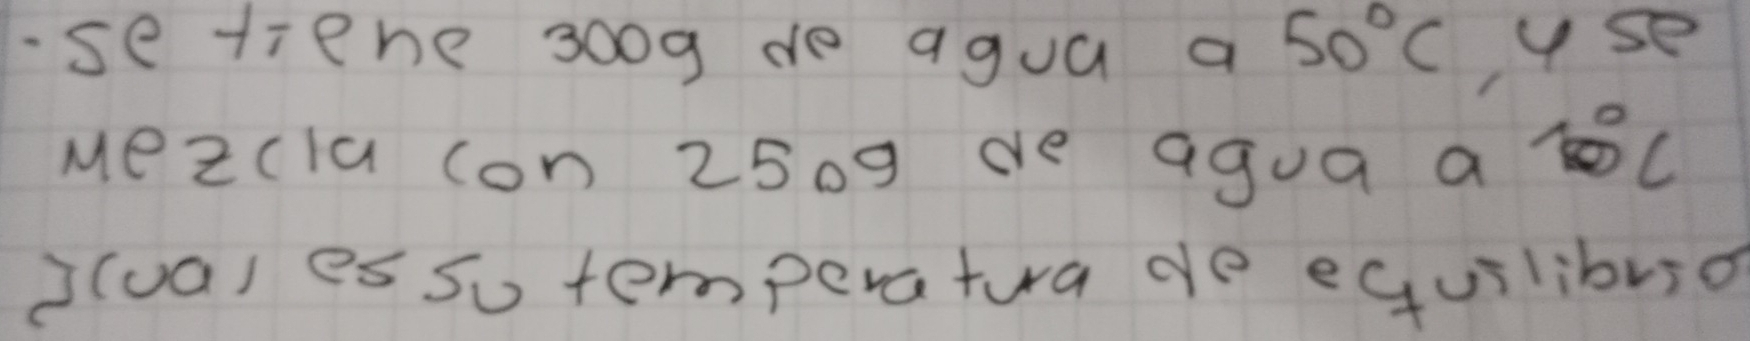 . se tiene 300g de agua a 50°C, y se
Mezcla con 250g de agua a °C
¿cual es su temperatura de equilibrio